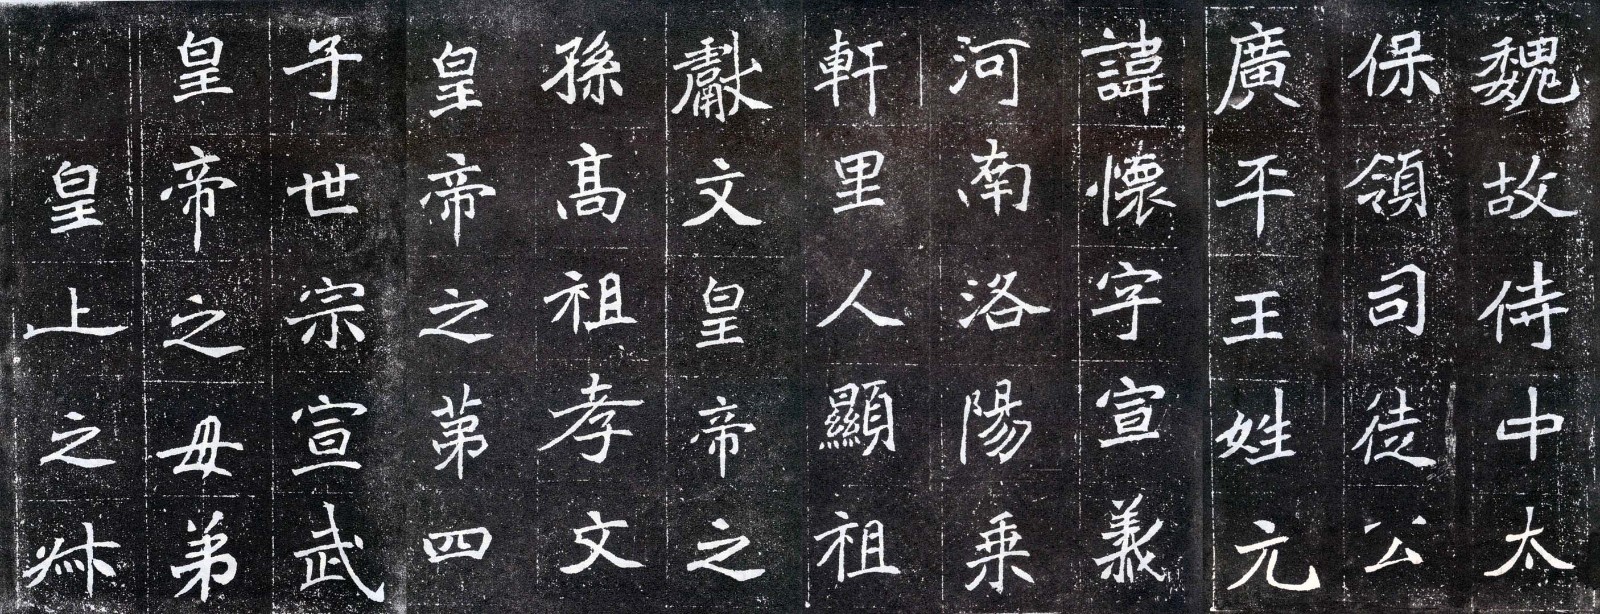 魏故侍中太
保領司徒公
廣平王姓元
諱懷字宣義
河南洛陽乗
軒里人顯祖
獻文皇帝之
孫髙祖孝文
皇帝之苐四
子世宗宣武
皇帝之母弟
皇上之叔